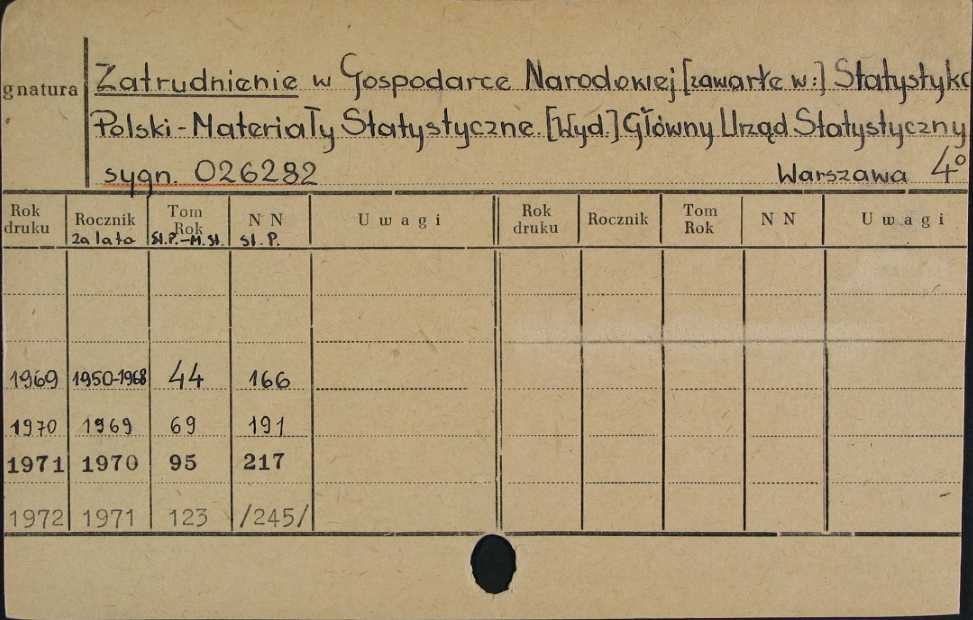 gnatura Zatrudnienie w Gospodarce Narodowej [zawarte w:] Statystyka
Polski - Materiały Statystyczne. [Wyd.] Główny Urząd Statystyczny
sygn. 026282 Warszawa 4°
Rok druku Rocznik za lata Tom Rok St. P.-M. St. N N St. P. Uwagi Rok druku Rocznik Tom Rok N N Uwagi
1969 1950-1968 44 166
1970 1969 69 191
1971 1970 95 217
1972 1971 123 /245/